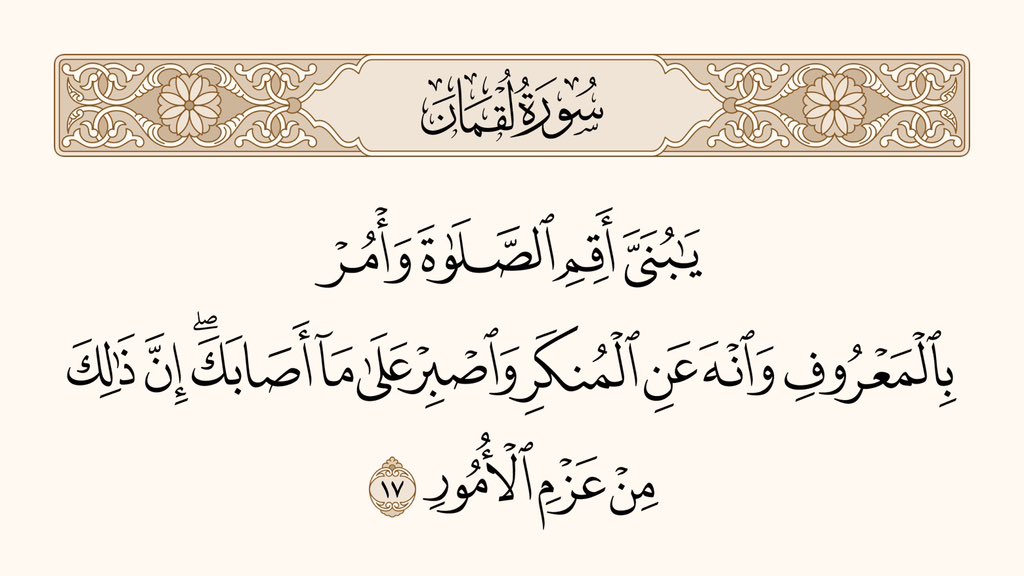 سُورَةُ لُقۡمَانَ
يَٰبُنَيَّ أَقِمِ ٱلصَّلَوٰةَ وَأۡمُرۡ
بِٱلۡمَعۡرُوفِ وَٱنۡهَ عَنِ ٱلۡمُنكَرِ وَٱصۡبِرۡ عَلَىٰ مَآ أَصَابَكَۖ إِنَّ ذَٰلِكَ
مِنۡ عَزۡمِ ٱلۡأُمُورِ ١٧